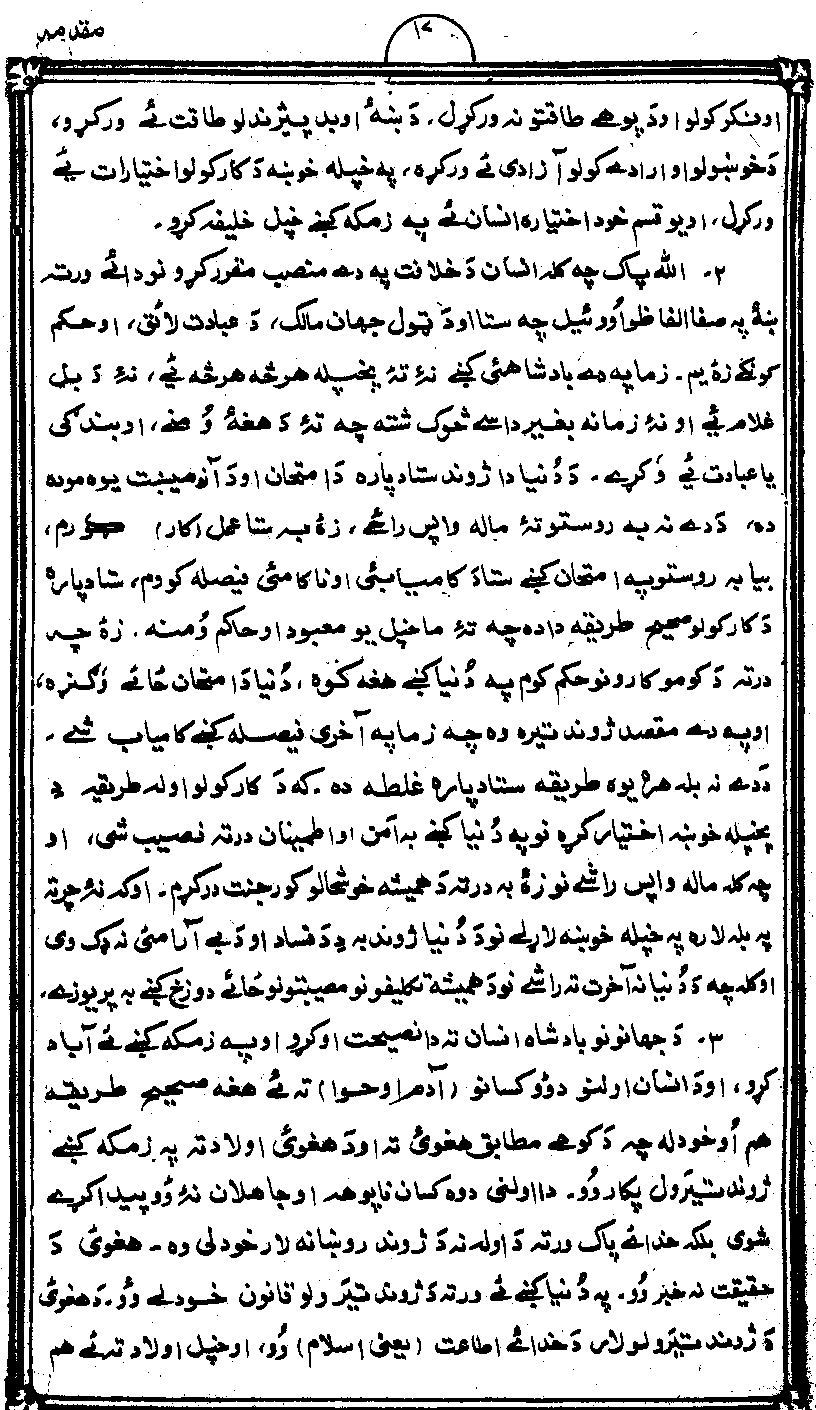 مقدمه
۱۷
او فکر کولو او د پوهے طاقتونه ورکړل. دَ ښهٔ او بد پېژندلو طاقت ئے ورکړو،
دَ خوښولو او ارادے کولو آزادی ئے ورکړه، په خپله خوښه دَ کار کولو اختیارات ئے
ورکړل، او یو قسم خود اختیاره انسان ئے په زمکه کښے خپل خلیفه کړو.
۲. الله پاک چه کله انسان دَ خلافت په دے منصب مقرر کړو نو دائے ورته
ښهٔ په صفا الفاظو اُووئیل چه ستا او دَ ټول جهان مالک، دَ عبادت لائق، او حکم
کونکے زهٔ یم. زما په دے بادشاهئ کښے نهٔ تهٔ پخپله هر څه هر څه ئے، نهٔ دَ بل
غلام ئے او نهٔ زما نه بغیر داسے څوک شته چه تهٔ دَ هغهٔ وُ منے، او بندګی
یا عبادت ئے وَکړے. دَ دُنیا دا ژوند ستا دپاره دَ امتحان او دَ آزمیښت یوه موده
ده، دَ دے نه به روستو تهٔ ماله واپس راځے، زهٔ به ستا عمل (کار) ګورم،
بیا به روستو په امتحان کښے ستا دَ کامیابئی او ناکامئی فیصله کوم، ستا دپاره
دَ کار کولو صحیح طریقه دا ده چه تهٔ ما خپل یو معبود او حاکم وُمنه. زهٔ چه
درته دَ کومو کارونو حکم کوم په دُنیا کښے هغه کوه، دُنیا دَ امتحان ځائے وَګنړه،
او په دے مقصد ژوند تیره وه چه زما په آخری فیصله کښے کامیاب شے.
دَ دے نه بله هرهٔ یوه طریقه ستا دپاره غلطه ده. که دَ کار کولو اوله طریقه دِ
پخپله خوښه اختیار کړه نو په دُنیا کښے به اَمن او اطمینان درته نصیب شی، او
چه کله ماله واپس راشے نو زهٔ به درته دَ همیشه خوشحالو کور جنت درکړم. او که نهٔ چرته
په بله لاره په خپله خوښه لاړلے نو دَ دُنیا ژوند به دِ دَ فساد او دَ بے آرامئ نه ډک وی
او کله چه دَ دُنیا نه آخرت ته راشے نو دَ همیشه تکلیفونو مصیبتونو ځائے دوزخ کښے به پریوزے.
۳. دَ جهانونو بادشاه انسان ته دا نصیحت اوکړو او په زمکه کښے ئے آباد
کړو، او دَ انسان اولنو دوؤ کسانو (آدم او حوا) ته ئے هغه صحیح طریقه
هم اُوخودله چه دَ کوهے مطابق هغوئ ته او دَ هغوئ اولاد ته په زمکه کښے
ژوند تیرول پکار وُو. دا اولنی دوه کسان ناپوهه او جاهلان نهٔ وُو پیدا کړے
شوی بلکه خدائے پاک ورته دَ اوله نه دَ ژوند روښانه لار خودلی وه. هغوئ دَ
حقیقت نه خبر وُو. په دُنیا کښے ئے ورته دَ ژوند تیَرولو قانون خودلے وُو. دَ هغوئ
دَ ژوند تیَرولو لار دَ خدائے اطاعت (یعنی اسلام) وُو، او خپل اولاد ته ئے هم